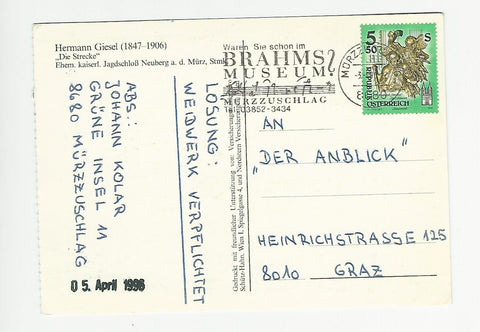 Hermann Giesel (1847-1906)
„Die Strecke“
Ehem. kaiserl. Jagdschloß Neuberg a. d. Mürz, Stmk.
Waren Sie schon im
BRAHMS
MUSEUM?
MÜRZZUSCHLAG
Tel. 03852-3434
5 50 S
REPUBLIK
ÖSTERREICH
AN
„DER ANBLICK"
HEINRICHSTRASSE 125
8010 GRAZ
LÖSUNG:
WEIDWERK VERPFLICHTET
ABS.:
JOHANN KOLAR
GRÜNE INSEL 11
8680 MÜRZZUSCHLAG
0 5. April 1998
Gedruckt mit freundlicher Unterstützung von: Versicherungsbüro
Schütz-Hahn, Wien I, Spiegelgasse 4, und Nordstern Versicherung